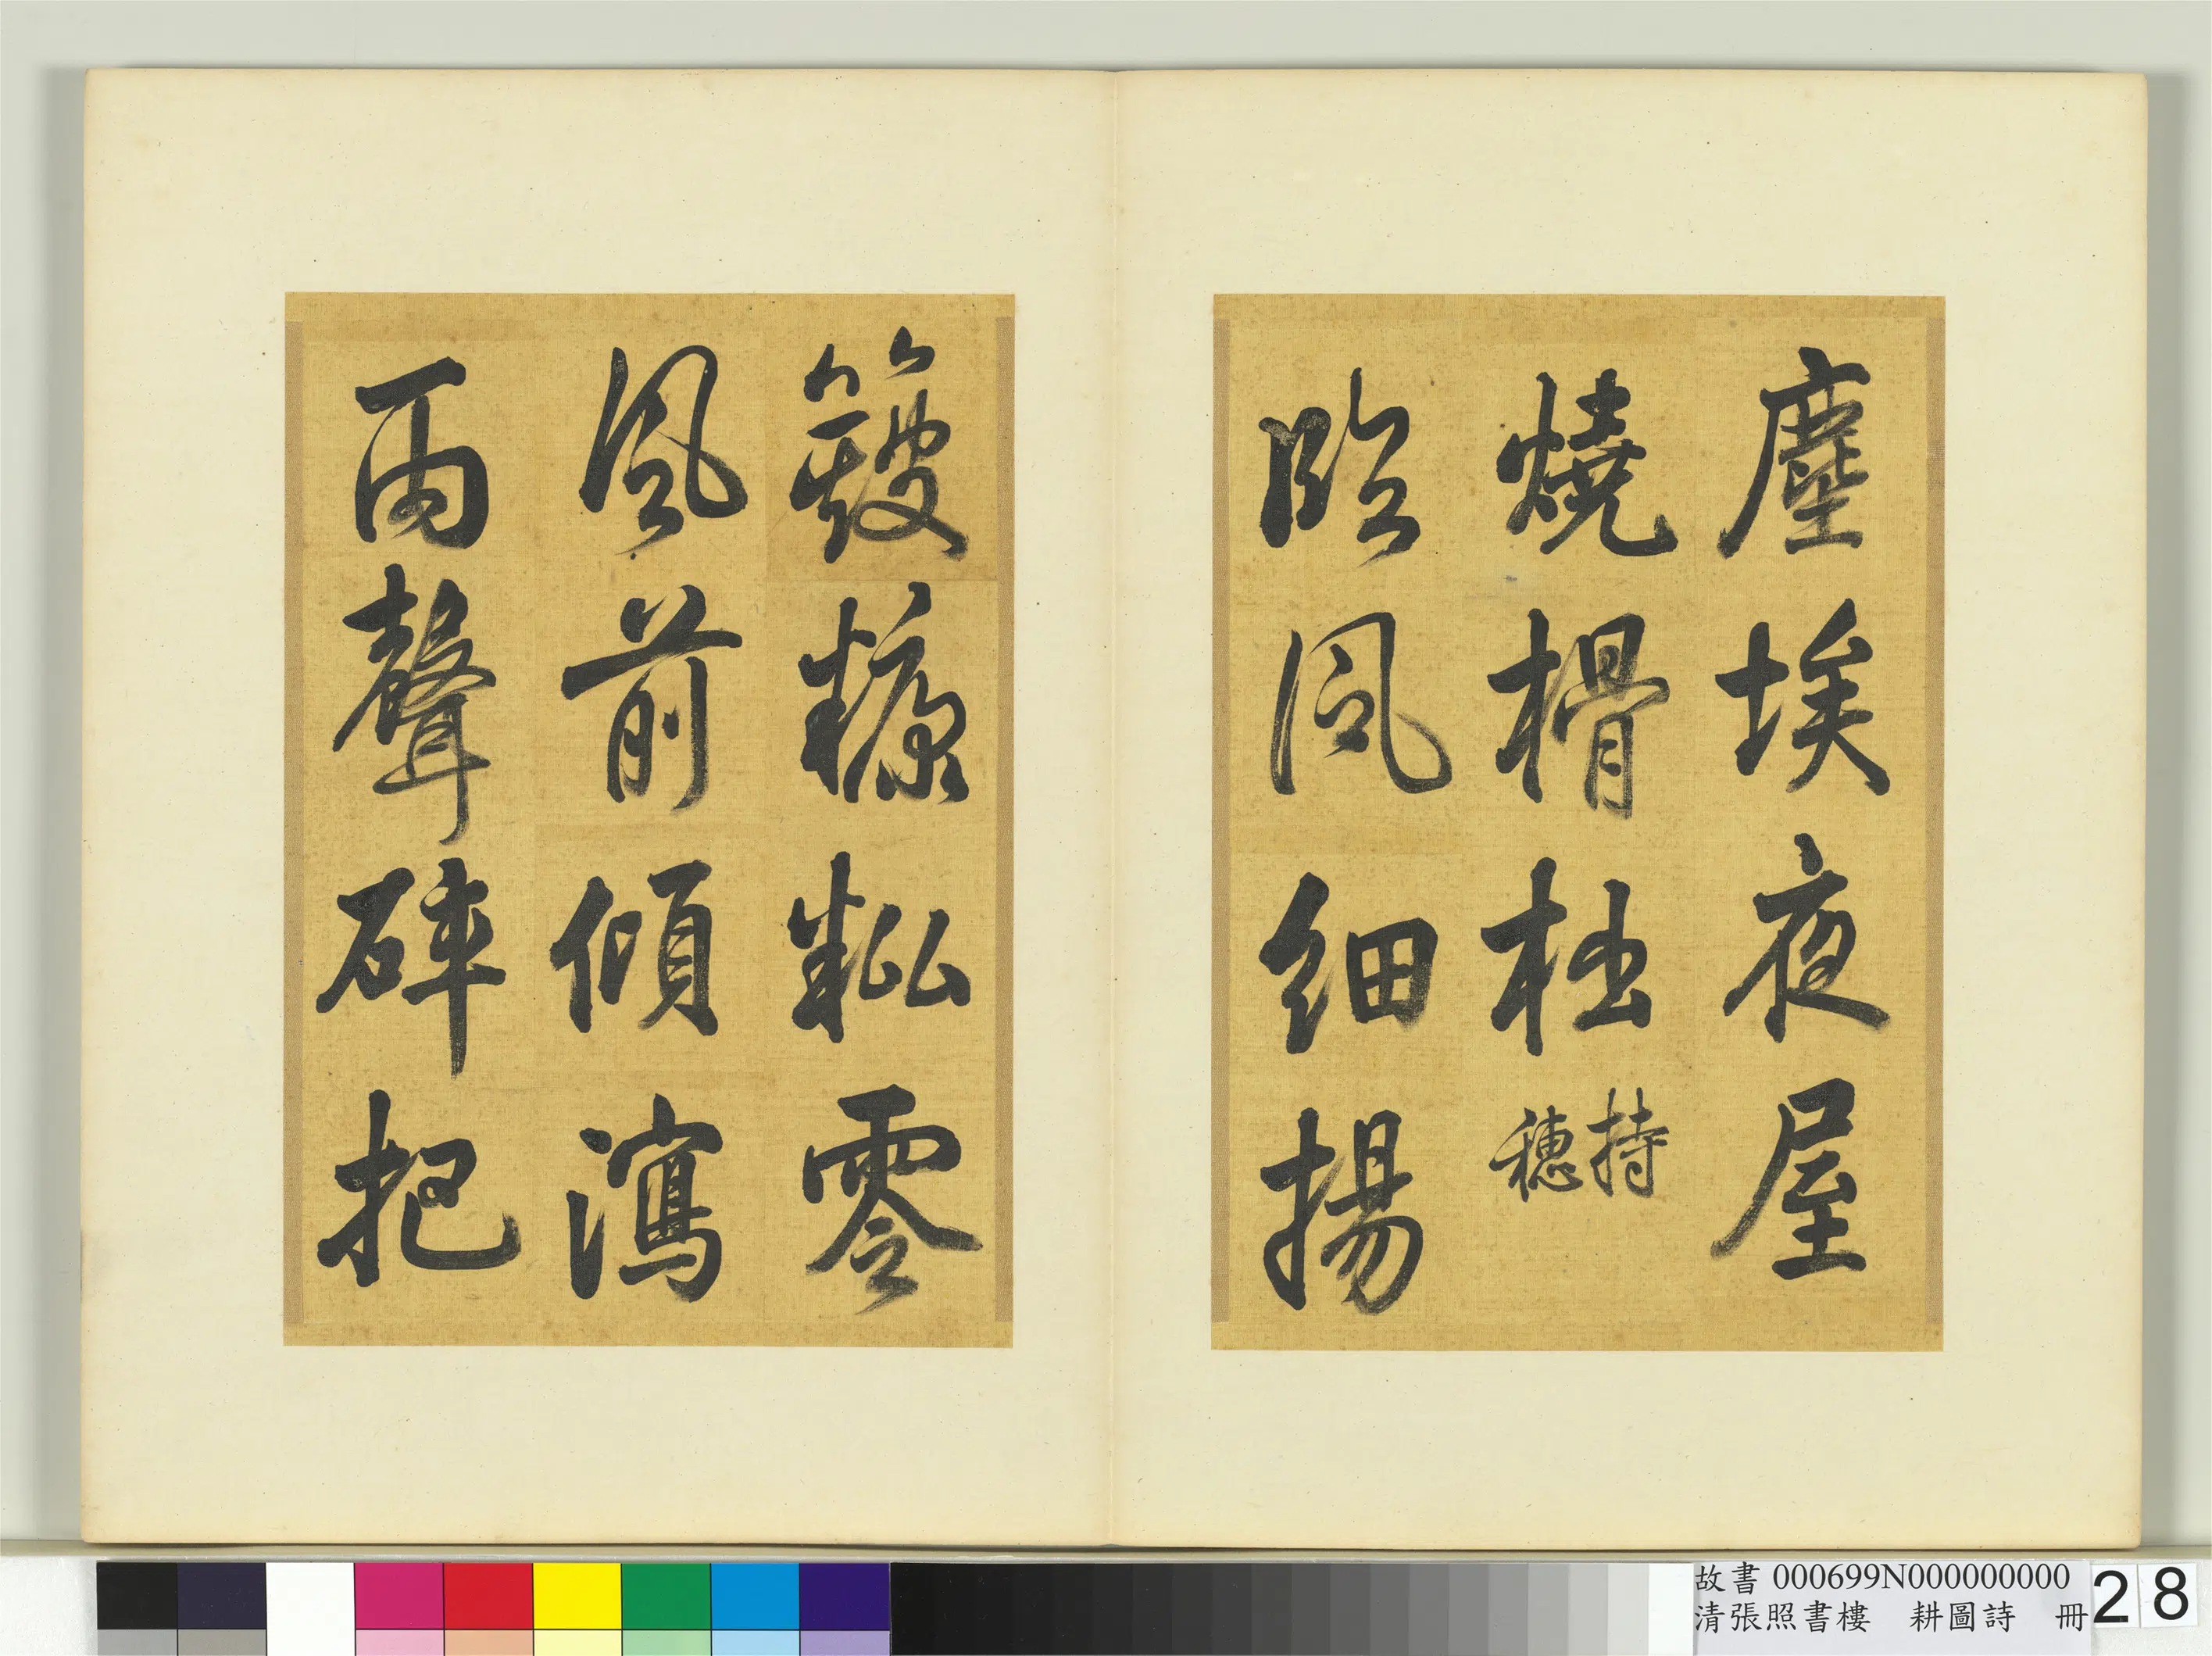 塵埃夜屋
燒榾柮持穗
臨風細揚
簸糠粃零
風前傾瀉
雨聲碎把
故書 000699N000000000
清張照書樓　耕圖詩　冊
28